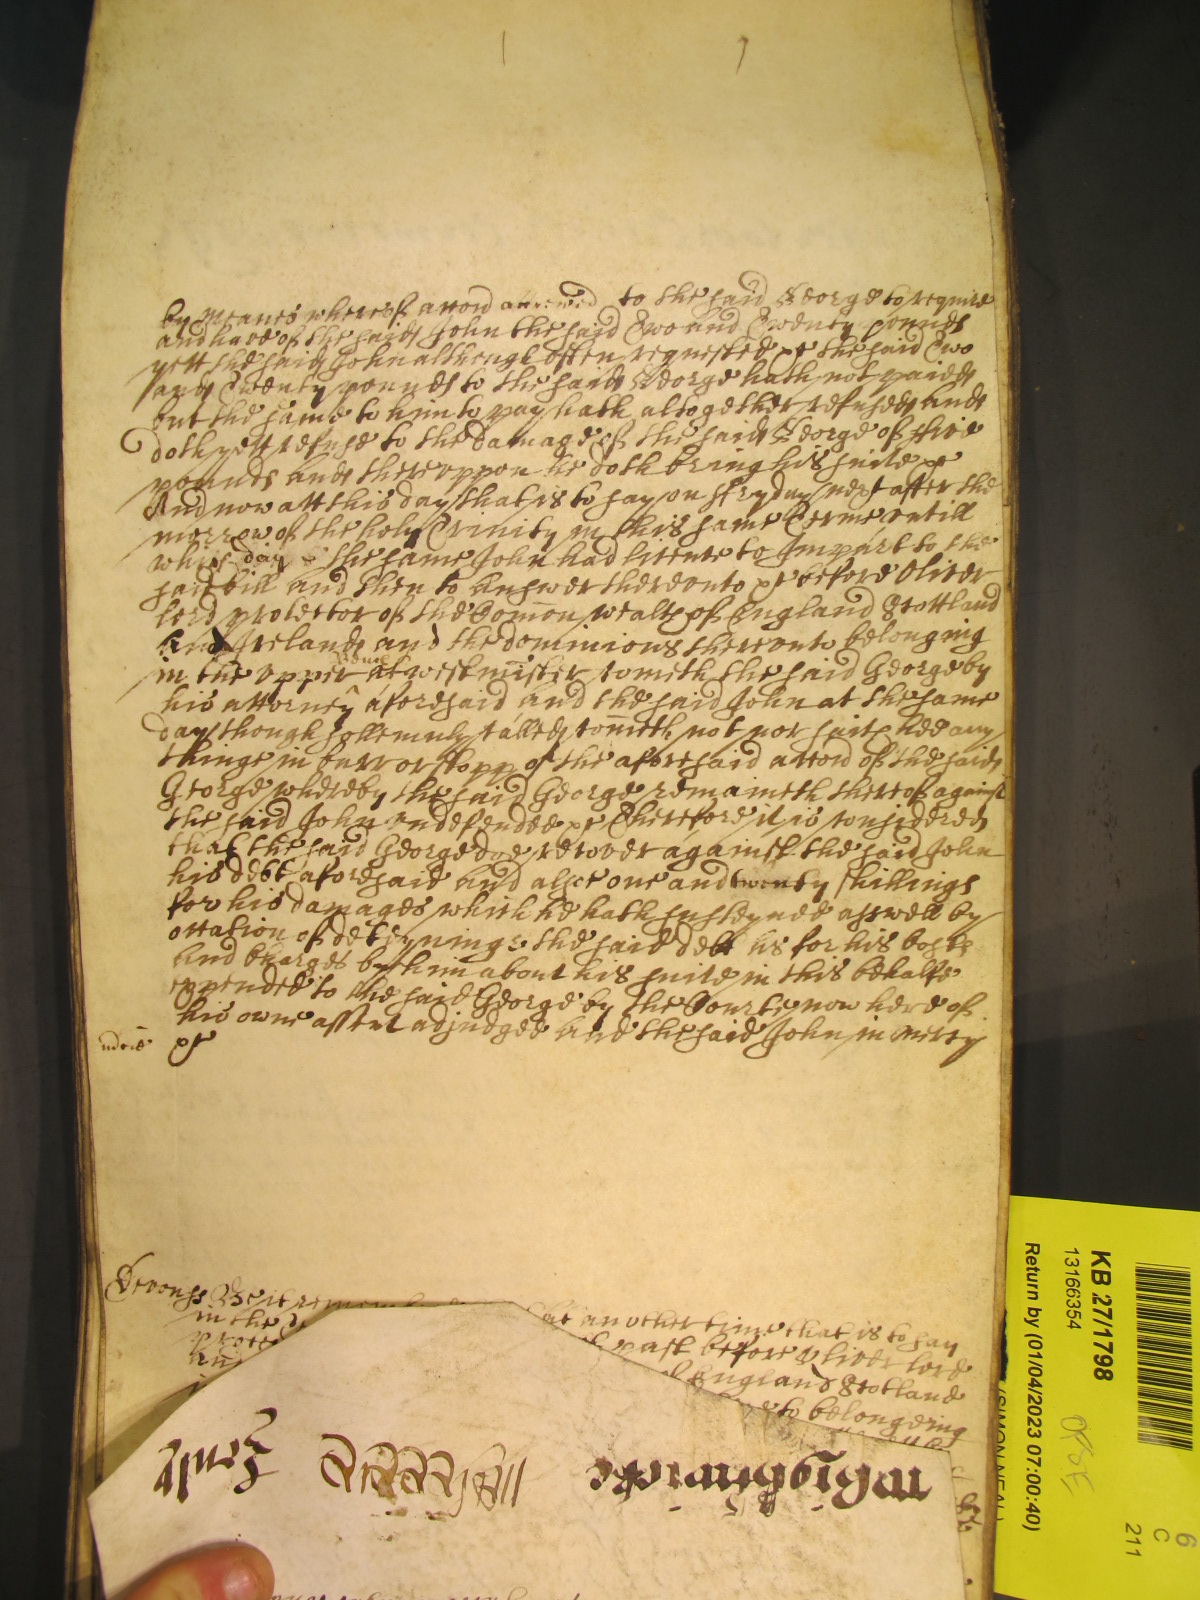 by meanes whereof accord accrewed to the said George to require
and have of the said John the said Two and Twenty pounds
yett the said John although often requested &c the said Two
and Twenty pounds to the said George hath not paied
but the same to him to pay hath altogether refused and
doth yett refuse to the damage of the said George of five
pounds and thereuppon he doth bring his suite &c
And now att this day that is to say on Fryday next after the
morrow of the holy Trinity in this same Terme untill
which day the same John had licence to Impart to the
said bill and then to answer thereunto &c before Oliver
lord protector of the Comon wealth of England Scottland
And Ireland and the dominions thereunto belonging
in the upper bench at westminster cometh the said George by
his attorney aforesaid and the said John at the same
day though sollemnly called cometh not nor saith hee any
thinge in barr or stopp of the aforesaid accord of the said
George whereby the said George remaineth thereof against
the said John undefended &c Therefore it is considered
that the said George doe recover against the said John
his debt aforesaid And alsoe one and twenty shillings
for his damages which he hath susteyned aswell by
occasion of deteyninge the said debt as for his Costs
And Charges by him about his suite in this behalfe
expended to the said George by the Courte now here of
his owne assent adjudged And the said John in mercy
&c
Devonss Be it remem at another time that is to say
in the past before Oliver lord
prote England Scotland
And to belongeing
KB 27/1798
13166354
Return by (01/04/2023 07:00:40)
(SIMON NEAL)
6
C
211